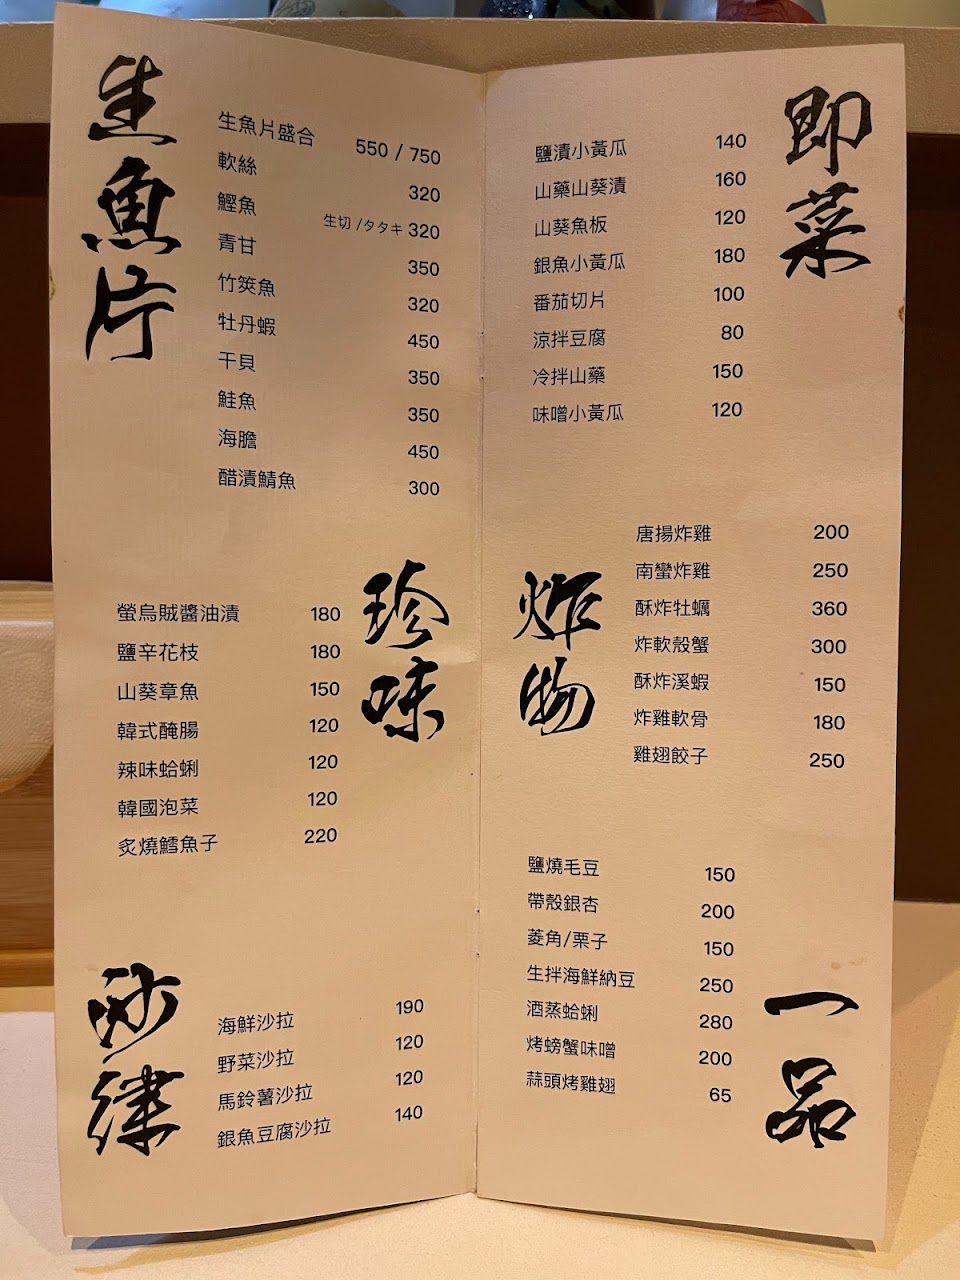 生魚片
生魚片盛合 550 / 750
軟絲 320
鰹魚 生切 /タタキ 320
青甘 350
竹筴魚 320
牡丹蝦 450
干貝 350
鮭魚 350
海膽 450
醋漬鯖魚 300
珍味
螢烏賊醬油漬 180
鹽辛花枝 180
山葵章魚 150
韓式醃腸 120
辣味蛤蜊 120
韓國泡菜 120
炙燒鱈魚子 220
沙律
海鮮沙拉 190
野菜沙拉 120
馬鈴薯沙拉 120
銀魚豆腐沙拉 140
即菜
鹽漬小黃瓜 140
山藥山葵漬 160
山葵魚板 120
銀魚小黃瓜 180
番茄切片 100
涼拌豆腐 80
冷拌山藥 150
味噌小黃瓜 120
炸物
唐揚炸雞 200
南蠻炸雞 250
酥炸牡蠣 360
炸軟殼蟹 300
酥炸溪蝦 150
炸雞軟骨 180
雞翅餃子 250
一品
鹽燒毛豆 150
帶殼銀杏 200
菱角/栗子 150
生拌海鮮納豆 250
酒蒸蛤蜊 280
烤螃蟹味噌 200
蒜頭烤雞翅 65